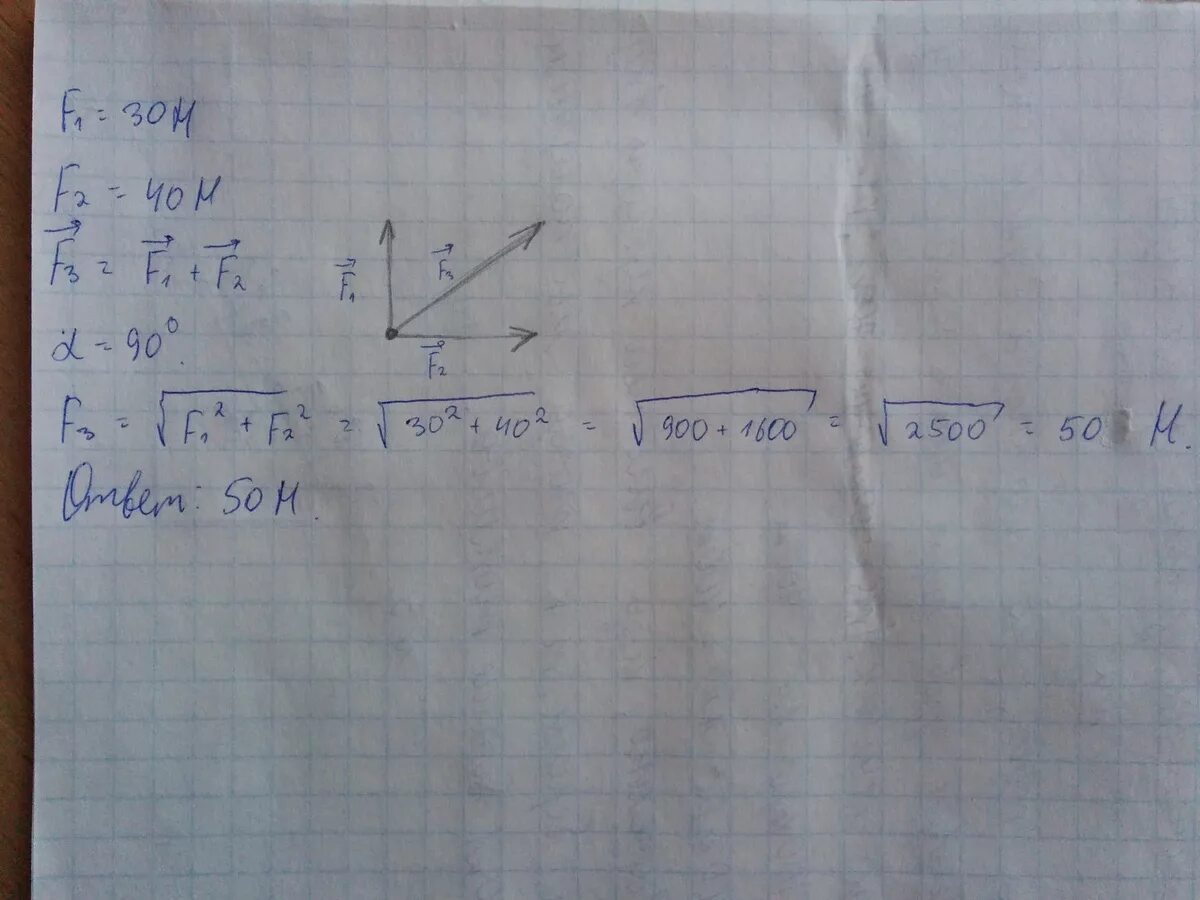 F₁ = 30 Н
F₂ = 40 Н
F⃗₃ = F⃗₁ + F⃗₂
F⃗₁
F⃗₃
F⃗₂
α = 90°.
F₃ = √(F₁² + F₂²) = √(30² + 40²) = √(900 + 1600) = √2500 = 50 Н.
Ответ: 50 Н.